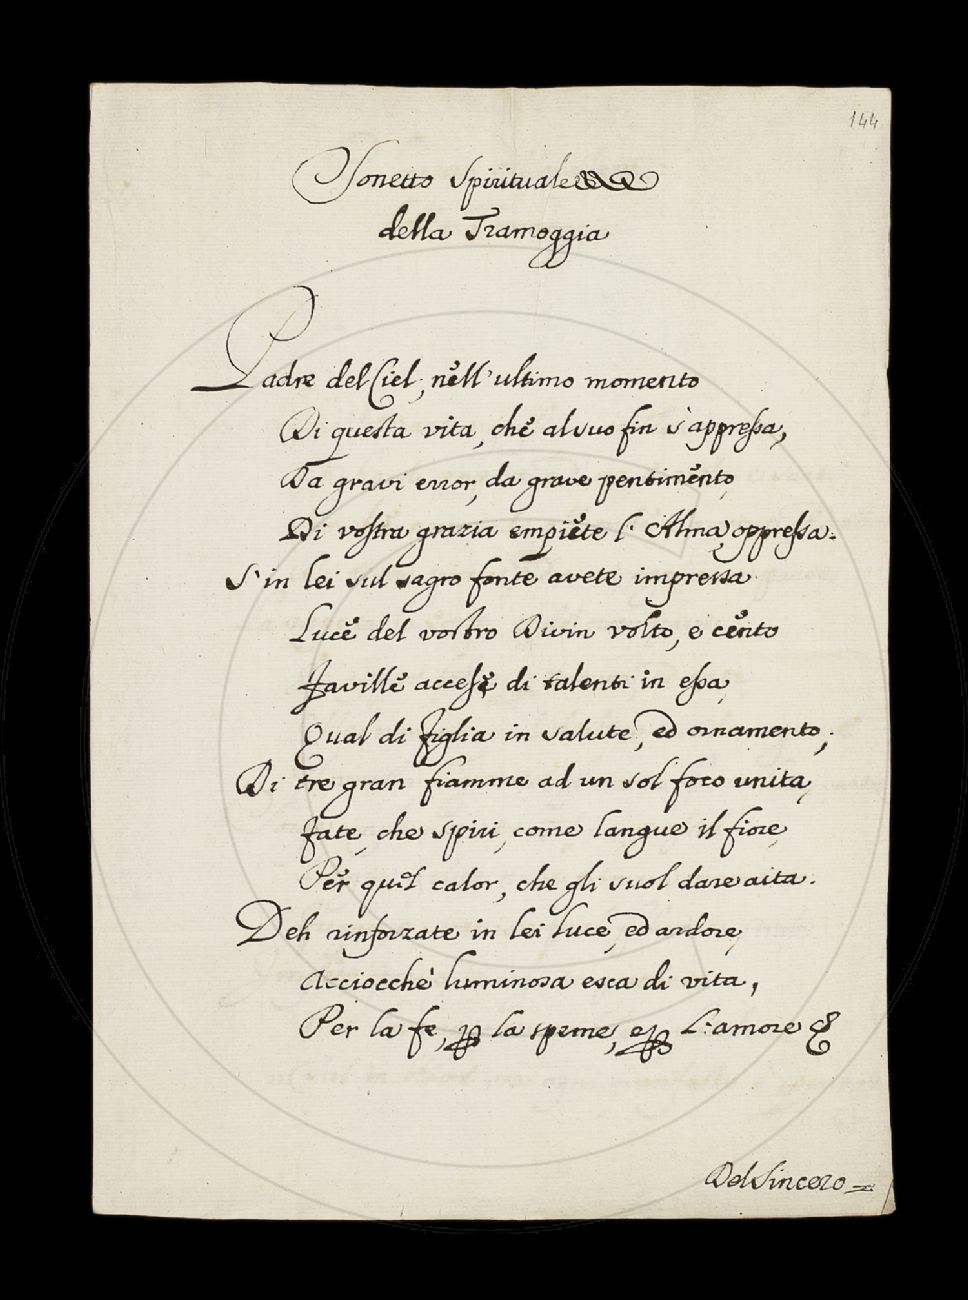 144
Sonetto Spirituale
della Tramoggia
Padre del Ciel, nell'ultimo momento
Di questa vita, che al suo fin s'appressa,
Da gravi error, da grave pentimento,
Di vostra grazia empiete l'Alma oppressa.
S'in lei sul sagro fonte avete impressa
Luce del vostro Divin volto, e cento
Faville accese di talenti in essa,
Qual di figlia in salute, ed ornamento,
Di tre gran fiamme ad un sol foco unita,
Fate, che spiri, come langue il fiore,
Per quel calor, che gli suol dare aita.
Deh rinforzate in lei luce, ed ardore,
Acciocche' luminosa esca di vita,
Per la fe, p la speme, e p L'amore
Del Sincero